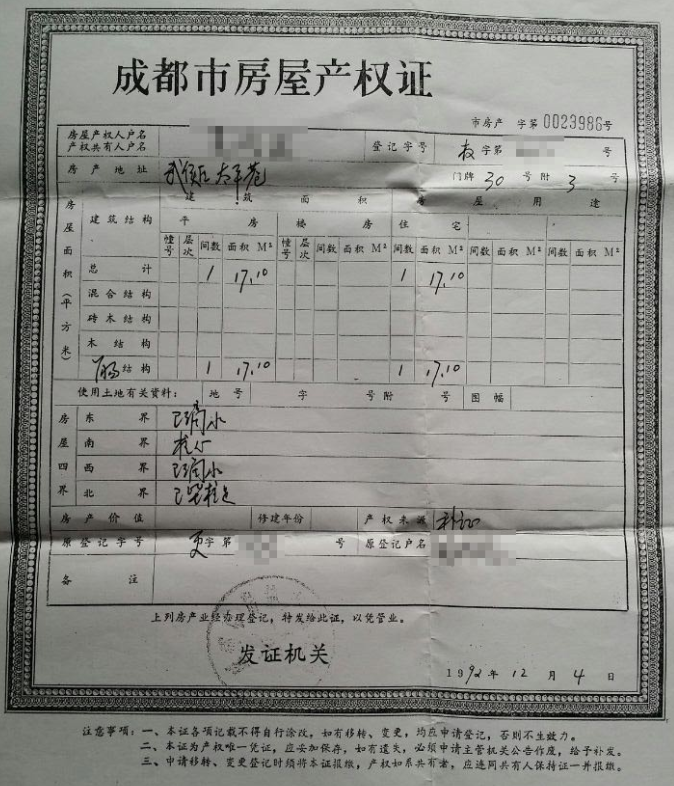 成都市房屋产权证
市房产 字第0023986号
房屋产权人户名
产权共有人户名
登记字号 权字第 号
房产地址 武侯区太平巷 门牌30号附3号
房屋面积(平方米)
建筑面积 房屋用途
建筑结构 平房 楼房 住宅
幢号 层次 间数 面积 M² 幢号 层次 间数 面积 M² 间数 面积 M² 间数 面积 M² 间数 面积 M²
总计 1 17.10 1 17.10
混合结构
砖木结构
木结构
结构 1 17.10 1 17.10
使用土地有关资料: 地号 字 号附 号 图幅
房屋四界
东界
南界
西界
北界
房产价值 修建年份 产权来源
原登记字号 更字第 号 原登记户名
备注
上列房产业经办理登记,特发给此证,以凭管业。
发证机关
1992年12月4日
注意事项:一、本证各项记载不得自行涂改,如有移转、变更,均应申请登记,否则不生效力。
二、本证为产权唯一凭证,应妥加保存,如有遗失,必须申请主管机关公告作废,给予补发。
三、申请移转、变更登记时须将本证报缴,产权如系共有者,应连同共有人保持证一并报缴。